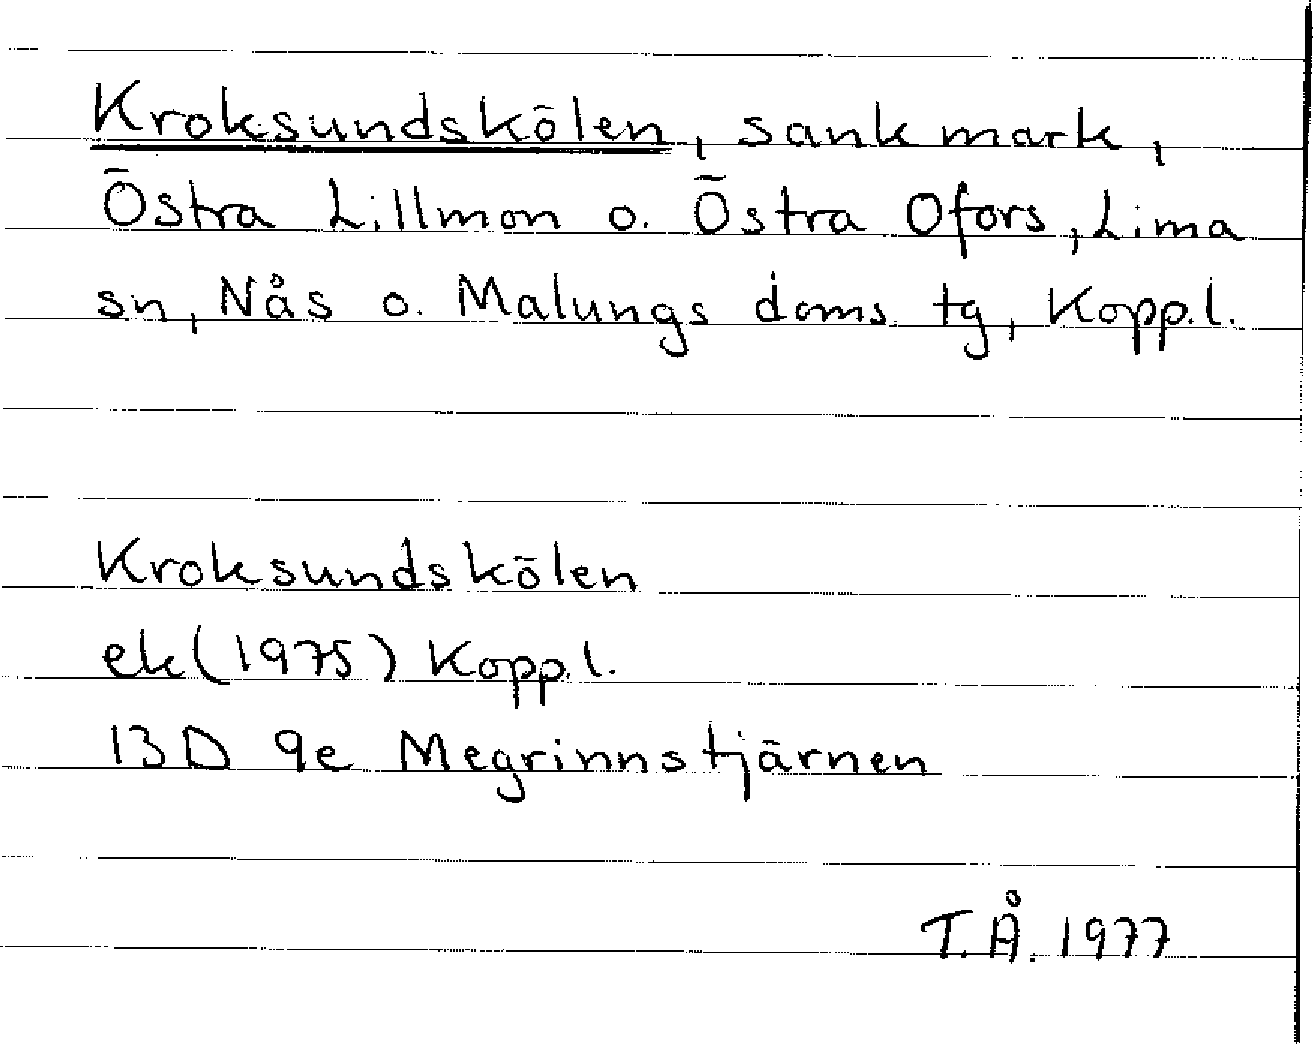 Kroksundskölen, sank mark,
Östra Lillmon o. Östra Ofors, Lima
sn, Nås o. Malungs doms. tg, Kopp.l.
Kroksundskölen
ek (1975) Kopp.l.
13D 9e Megrinnstjärnen
T.Å. 1977